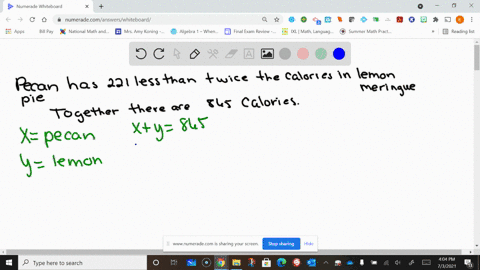 Numerade Whiteboard
numerade.com/answers/whiteboard/
Apps
Bill Pay
National Math and...
Mrs. Amy Korning -...
Algebra 1 – When...
Final Exam Review -...
IXL | Math, Languag...
Summer Math Pract...
Reading list
Pecan has 221 less than twice the calories in lemon
pie meringue
Together there are 845 Calories.
X = pecan x + y = 845
y = lemon
www.numerade.com is sharing your screen. Stop sharing Hide
Type here to search
4:04 PM
7/3/2021